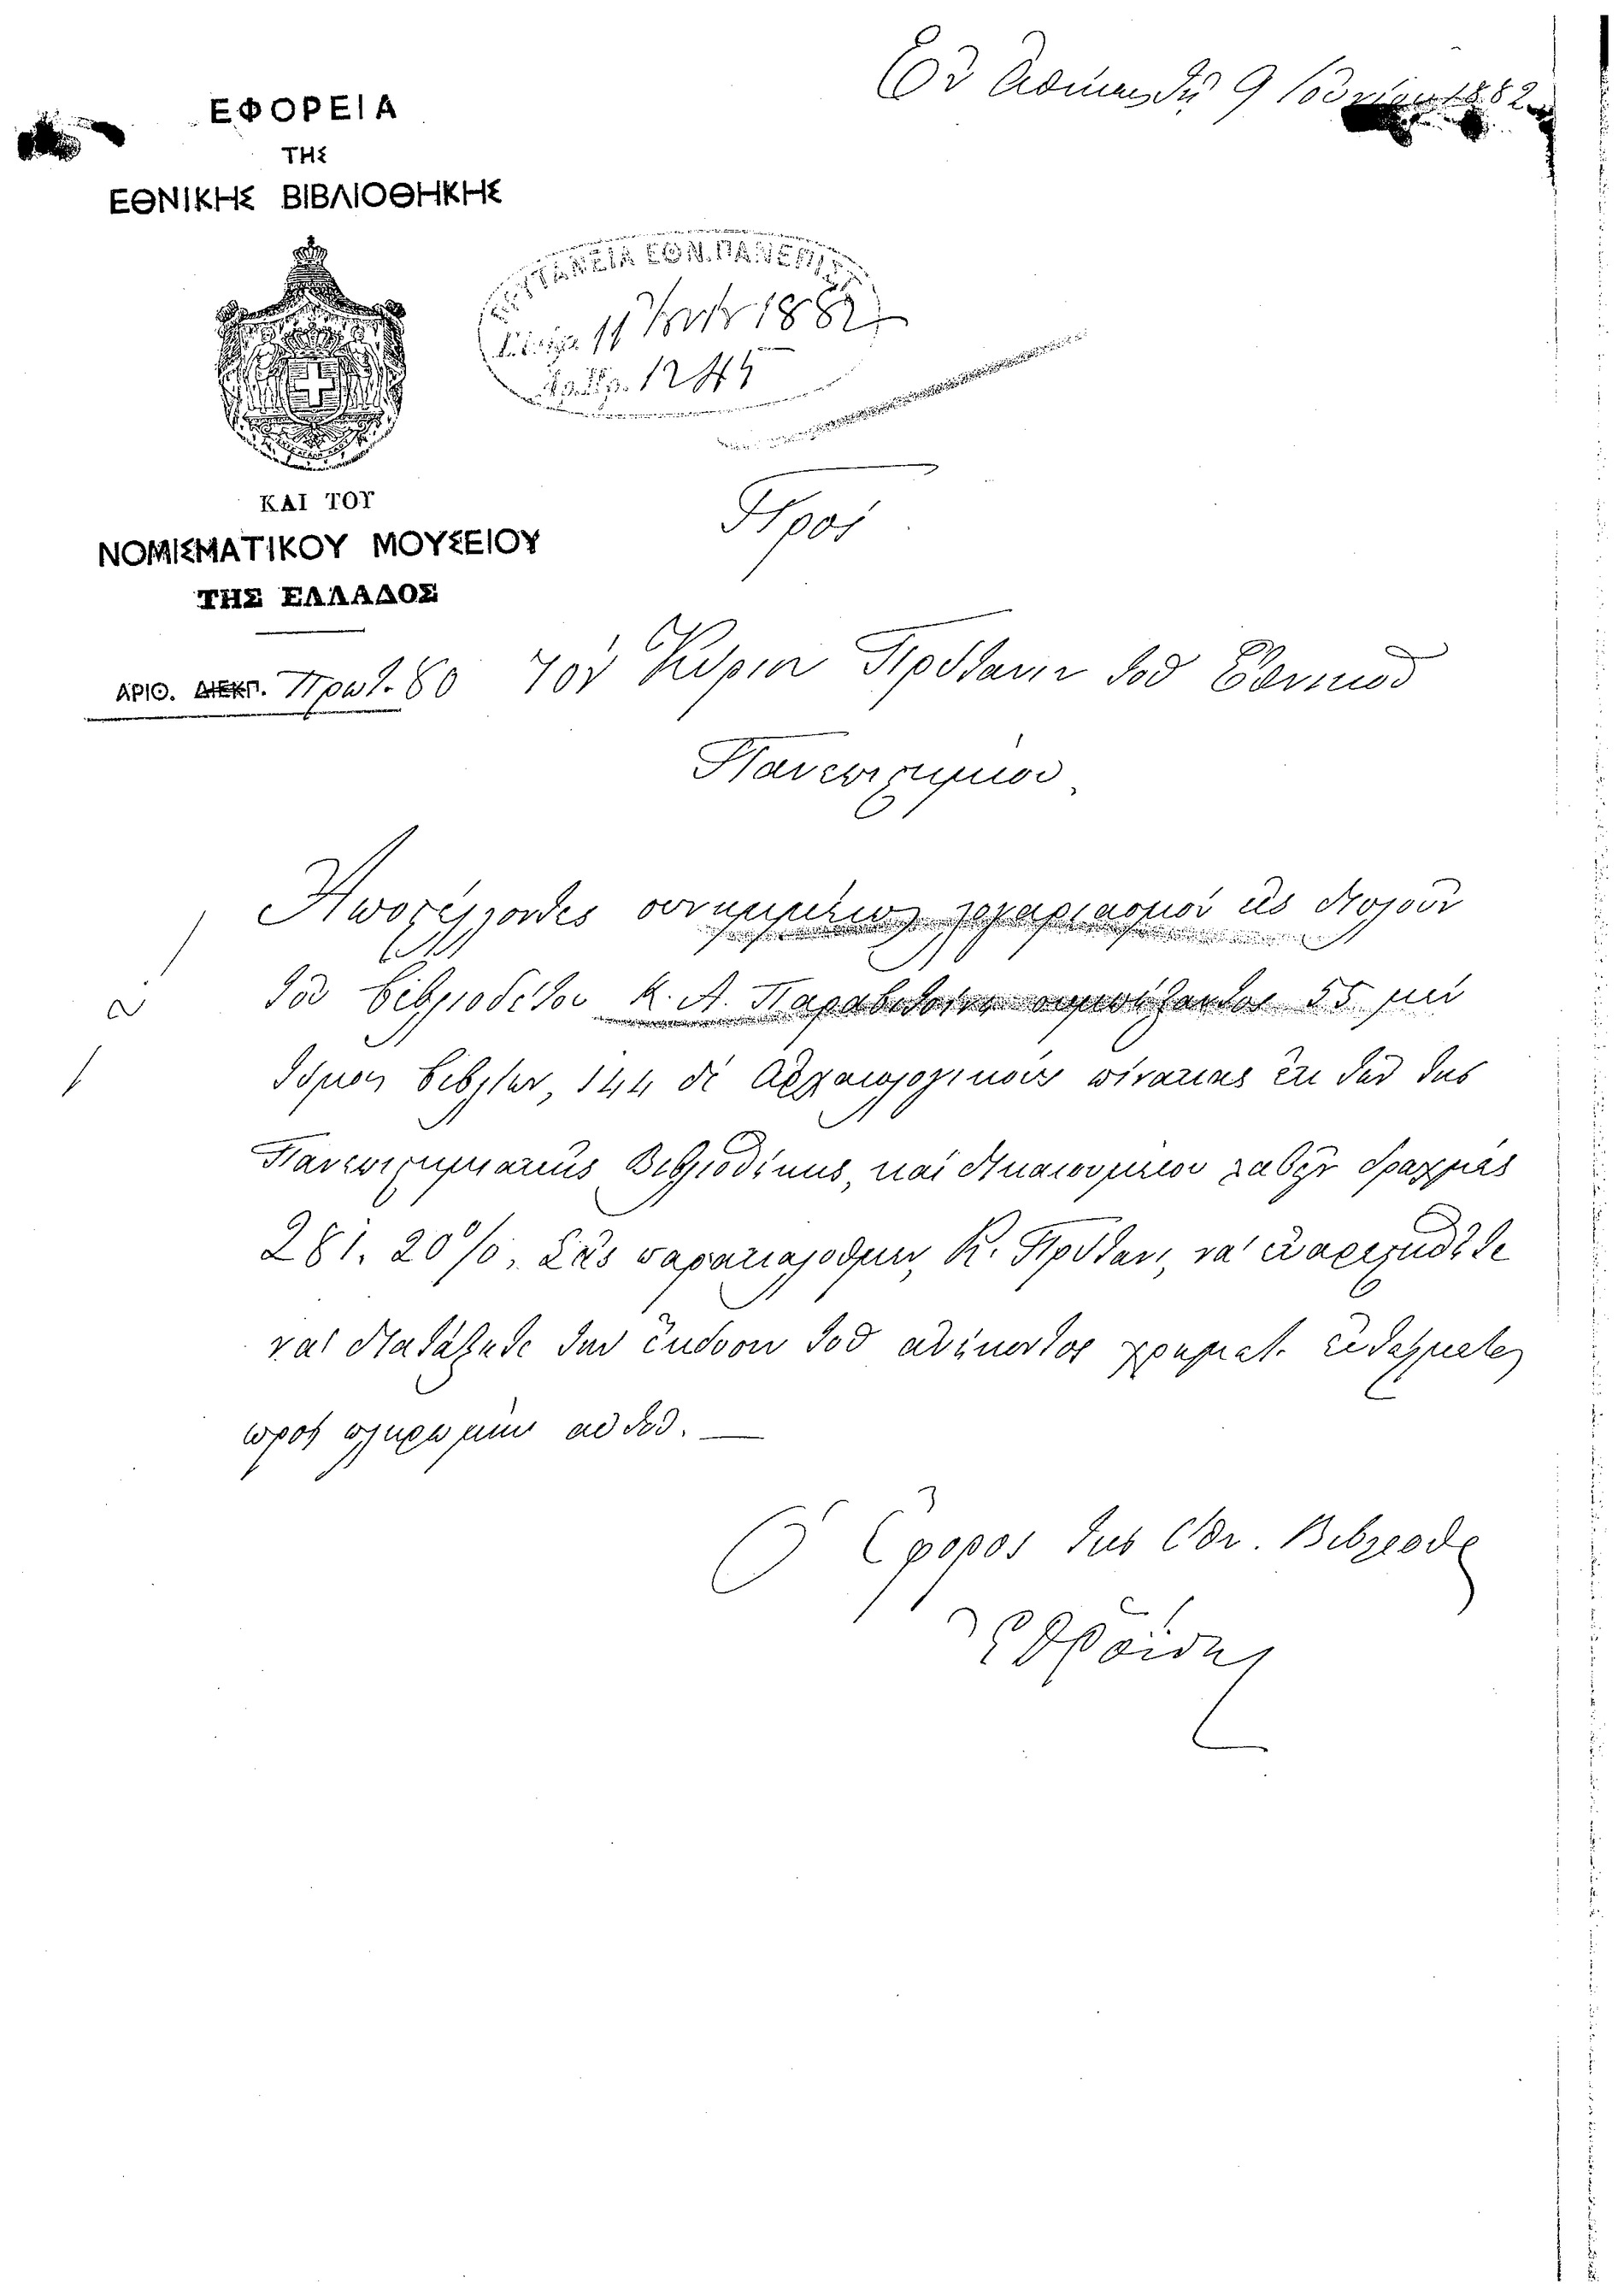 Ἐν Ἀθήναις τῇ 9 1882
ΕΦΟΡΕΙΑ
ΤΗΣ
ΕΘΝΙΚΗΣ ΒΙΒΛΙΟΘΗΚΗΣ
ΠΡΥΤΑΝΕΙΑ ΕΘΝ. ΠΑΝΕΠΙΣΤ.
11 1882
Ἀρ. Πρ. 1245
ΚΑΙ ΤΟΥ
ΝΟΜΙΣΜΑΤΙΚΟΥ ΜΟΥΣΕΙΟΥ
ΤΗΣ ΕΛΛΑΔΟΣ
Πρὸς
ΑΡΙΘ. ΔΙΕΚΠ. Πρωτ. 80
Τὸν Κύριον Πρύτανιν τοῦ Ἐθνικοῦ
Πανεπιστημίου
Ἀποστέλλοντες συνημμένως λογαριασμὸν εἰς διπλοῦν
τοῦ βιβλιοδέτου Κ. Α. 55 μὲν
τόμους βιβλίων, 144 δὲ ἀρχαιολογικοὺς πίνακας ἐκ τῶν τῆς
Πανεπιστημιακῆς Βιβλιοθήκης, καὶ δικαιουμένου λαβεῖν δραχμὰς
281. 20%, Σᾶς παρακαλοῦμεν, Κ. Πρύτανι, νὰ εὐαρεστηθῆτε
νὰ διατάξητε τὴν ἔκδοσιν τοῦ ἀνήκοντος χρηματ. ἐντάλματος
πρὸς πληρωμὴν αὐτοῦ. —
Ὁ Ἔφορος τῆς Ἐθν. Βιβλιοθ.